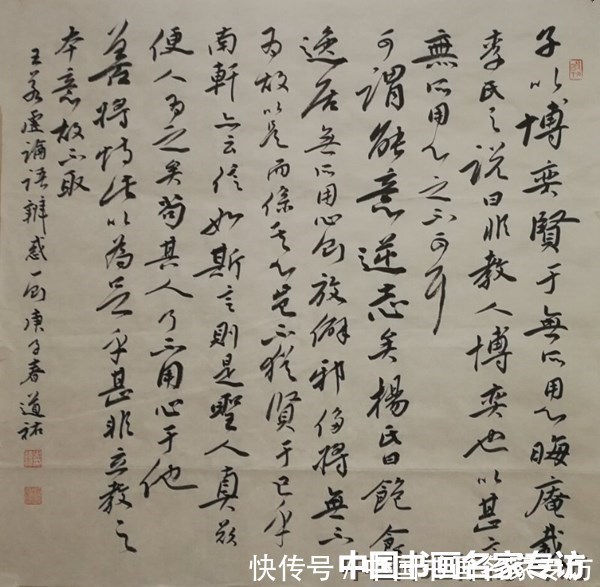 子以博奕賢于無所用心晦庵載
李氏之說曰非教人博奕也以甚言
無所用心之不可耳
可謂能意逆志矣楊氏曰飽食
逸居無所用心則放僻邪侈將無不
为故以是而係其心豈不猶賢于已乎
南軒亦云信如斯言則是聖人真欲
使人为之矣苟其人乃不用心于他
善將恃此以為足乎甚非立教之
本意故不取
王若虛論語辨惑一則庚子春道祐
快传号
中国书画名家专访